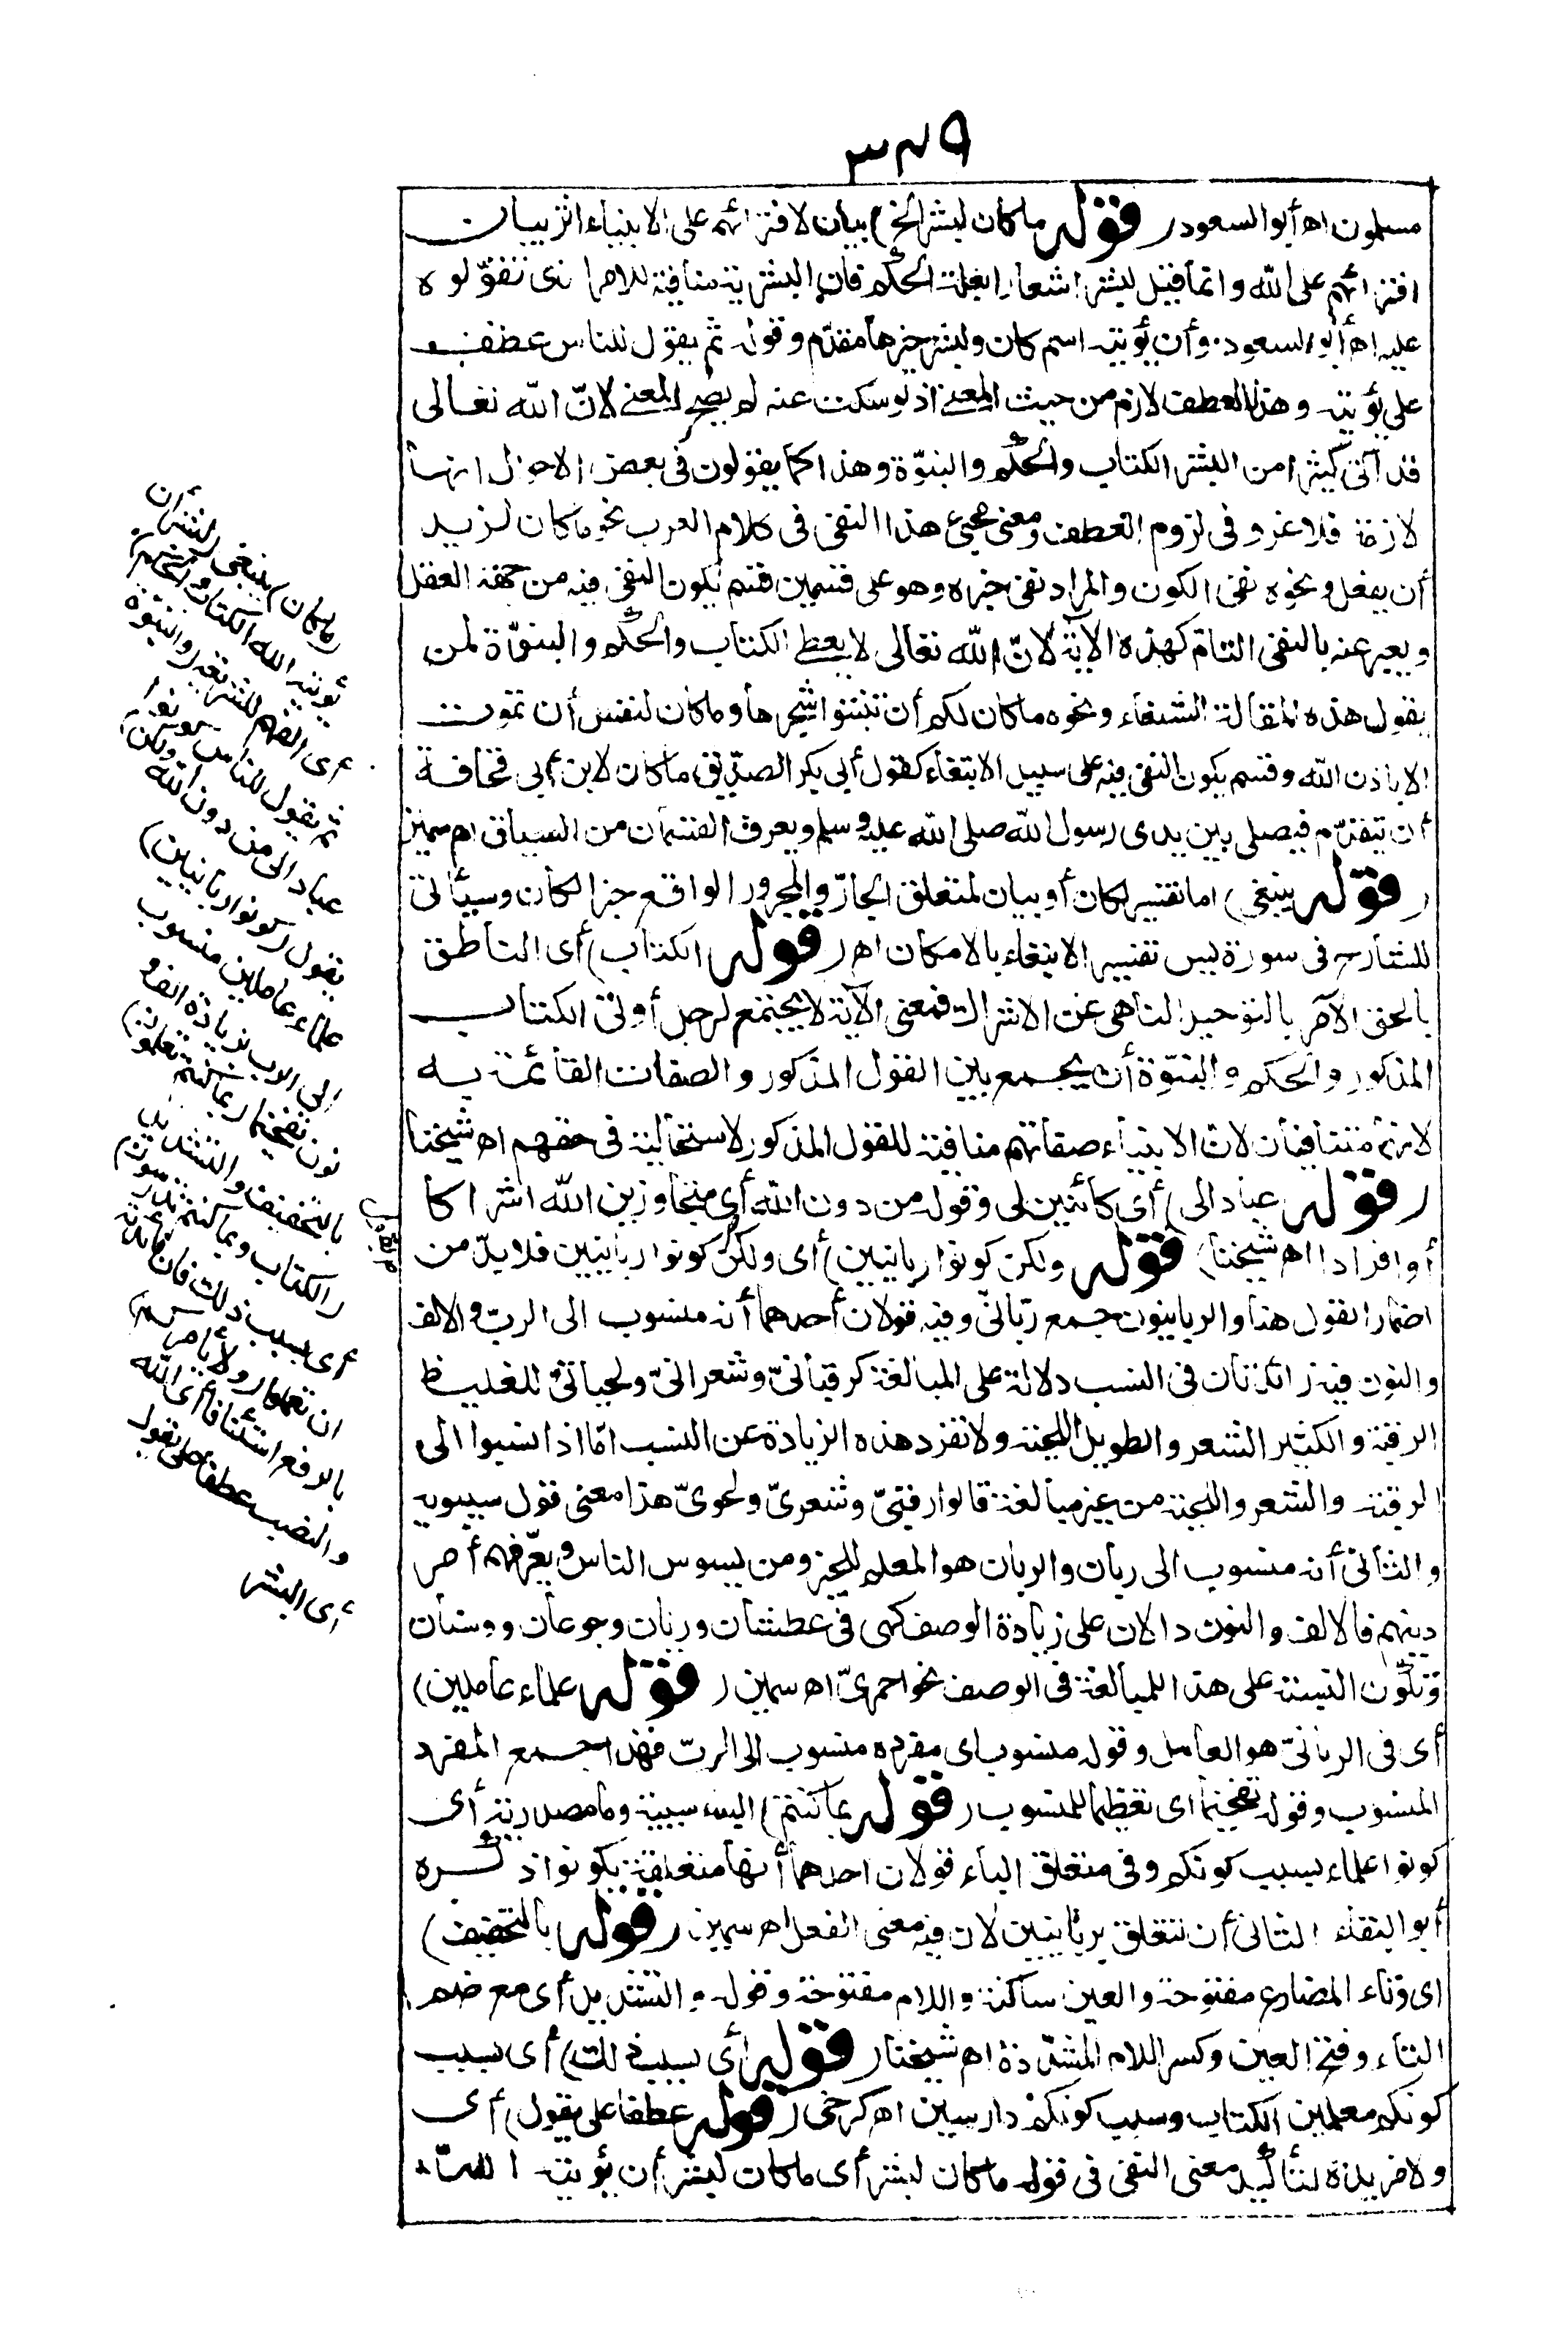 ٣٤٩
مسلمون اه أبو السعود (قوله ما كان لبشر الخ) بيان لافترائهم على الانبياء اثر بيان
افترائهم على الله وانما قيل لبشر اشعارا بعلة الحكم فان البشرية منافية للامر الذى تقوّلوه
عليه اه أبو السعود وأن يؤتيه اسم كان ولبشر خبرها مقدّم وقوله ثم يقول للناس عطف
على يؤتيه وهذا العطف لازم من حيث المعنى اذ لو سكت عنه لم يصح المعنى لانّ الله تعالى
قد آتى كثيرا من البشر الكتاب والحكم والنبوّة وهذا كما يقولون فى بعض الاحوال انها
لازمة فلا غرو فى لزوم العطف ومعنى مجىء هذا النفى فى كلام العرب نحو ما كان لزيد
أن يفعل ونحوه نفى الكون والمراد نفى خبره وهو على قسمين قسم يكون النفى فيه من جهة العقل
ويعبر عنه بالنفى التامّ كهذه الآية لانّ الله تعالى لا يعطى الكتاب والحكم والنبوّة لمن
يقول هذه المقالة الشنعاء ونحوه ما كان لكم أن تنبتوا شجرها وما كان لنفس أن تموت
الا باذن الله وقسم يكون النفى فيه على سبيل الابتغاء كقول أبى بكر الصدّيق ما كان لابن أبى قحافة
أن يتقدّم فيصلى بين يدى رسول الله صلى الله عليه وسلم ويعرف القسمان من السياق اه سمين
(قوله ينبغى) اما تفسير لكان أو بيان لمتعلق الجارّ والمجرور الواقع خبرا لكان وسيأتى
للشارح فى سورة يس تفسير الابتغاء بالامكان اه (قوله الكتاب) أى الناطق
بالحق الآمر بالتوحيد الناهى عن الاشراك فمعنى الآية لا يجتمع لرجل أوتى الكتاب
المذكور والحكم والنبوّة أن يجمع بين القول المذكور والصفات القائمة به
لانها متنافيان لانّ الانبياء صفاتهم منافية للقول المذكور لاستحاليته فى حقهم اه شيخنا
(قوله عبادا لى) أى كائنين لى وقوله من دون الله أى متجاوزين الله اشراكا
أو افرادا اه شيخنا (قوله ولكن كونوا ربانيين) أى ولكن يقول كونوا ربانيين فلا بدّ من
اضمار القول هنا والربانيون جمع ربّانىّ وفيه قولان أحدهما أنه منسوب الى الربّ والالف
والنون فيه زائدتان فى النسب دلالة على المبالغة كرقبانىّ وشعرانىّ ولحيانىّ للغليظ
الرقبة والكثير الشعر والطويل اللحية ولا تفرد هذه الزيادة عن النسب امّا اذا نسبوا الى
الرقبة والشعر واللحية من غير مبالغة قالوا رقبىّ وشعرىّ ولحوىّ هذا معنى قول سيبويه
والثانى أنه منسوب الى ربان والربان هو المعلم للخير ومن يسوس الناس ويعرّفهم أمر
دينهم فالالف والنون دالان على زيادة الوصف كهى فى عطشان وريان وجوعان ووسنان
وتكون النسبة على هذا للمبالغة فى الوصف نحو احمرىّ اه سمين (قوله علماء عاملين)
أى فى الربانىّ هو العامل وقوله منسوب اى مفرده منسوب الى الربّ فهذا جمع المفرد
المنسوب وقوله تفخيما اى تعظيما للمنسوب (قوله بما كنتم) الباء سببية وما مصدرية أى
كونوا علماء بسبب كونكم وفى متعلق الباء قولان احدهما أنها متعلقة بكونوا ذكره
أبو البقاء الثانى أن تتعلق بربانيين لان فيه معنى الفعل اه سمين (قوله بالتخفيف)
اى وتاء المضارع مفتوحة والعين ساكنة واللام مفتوحة وقوله والتشديد أى مع ضم
التاء وفتح العين وكسر اللام المشدّدة اه شيخنا (قوله أى بسبب ذلك) أى بسبب
كونكم معلمين الكتاب وسبب كونكم دارسين اه كرخى (قوله عطفا على يقول) أى
ولا مزيدة لتأكيد معنى النفى فى قوله ما كان لبشر أى ما كان لبشر أن يؤتيه الله
(ما كان) ينبغى (لبشر أن
يؤتيه الله الكتاب والحكم)
أى الفهم للشريعة (والنبوّة
ثم يقول للناس كونوا
عبادا لى من دون الله ولكن)
يقول (كونوا ربانيين)
علماء عاملين منسوب
الى الرب بزيادة الف و
نون تفخيما (بما كنتم تعلمون)
بالتخفيف والتشديد
(الكتاب وبما كنتم تدرسون)
أى بسبب ذلك فان فائدته
ان تعملوا (ولا يأمركم)
بالرفع استئنافا أى الله
والنصب عطفا على يقول
أى البشر